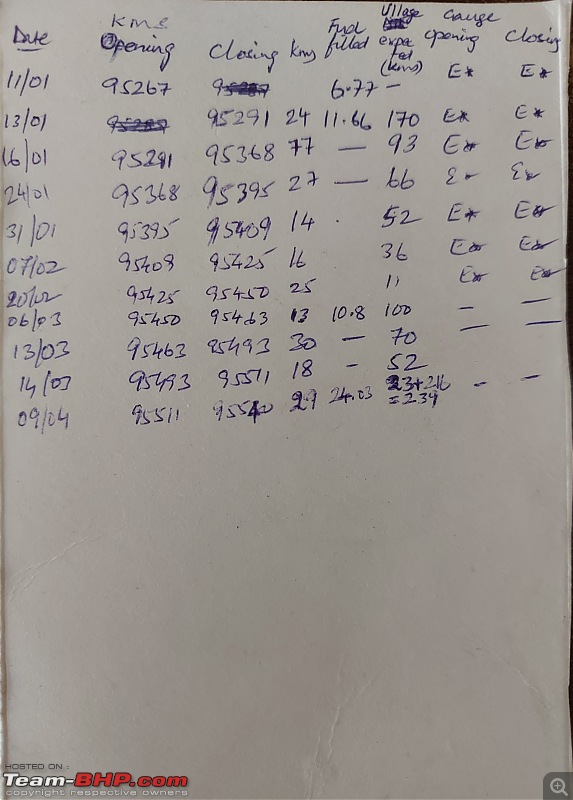 Kms Fuel Village Gauge
Date Opening Closing Kms filled expected (kms) opening closing
11/01 95267 6.77 — E* E*
13/01 95291 24 11.66 170 E* E*
16/01 95291 95368 77 — 93 E* E*
24/01 95368 95395 27 — 66 E* E*
31/01 95395 95409 14 . 52 E* E*
07/02 95409 95425 16 36 E* E*
20/02 95425 95450 25 11 E* E*
06/03 95450 95463 13 10.8 100 — —
13/03 95463 95493 30 — 70 — —
14/03 95493 95511 18 — 52
09/04 95511 95540 29 24.03 23+216 - -
= 239
HOSTED ON :
Team-BHP.com
copyright respective owners